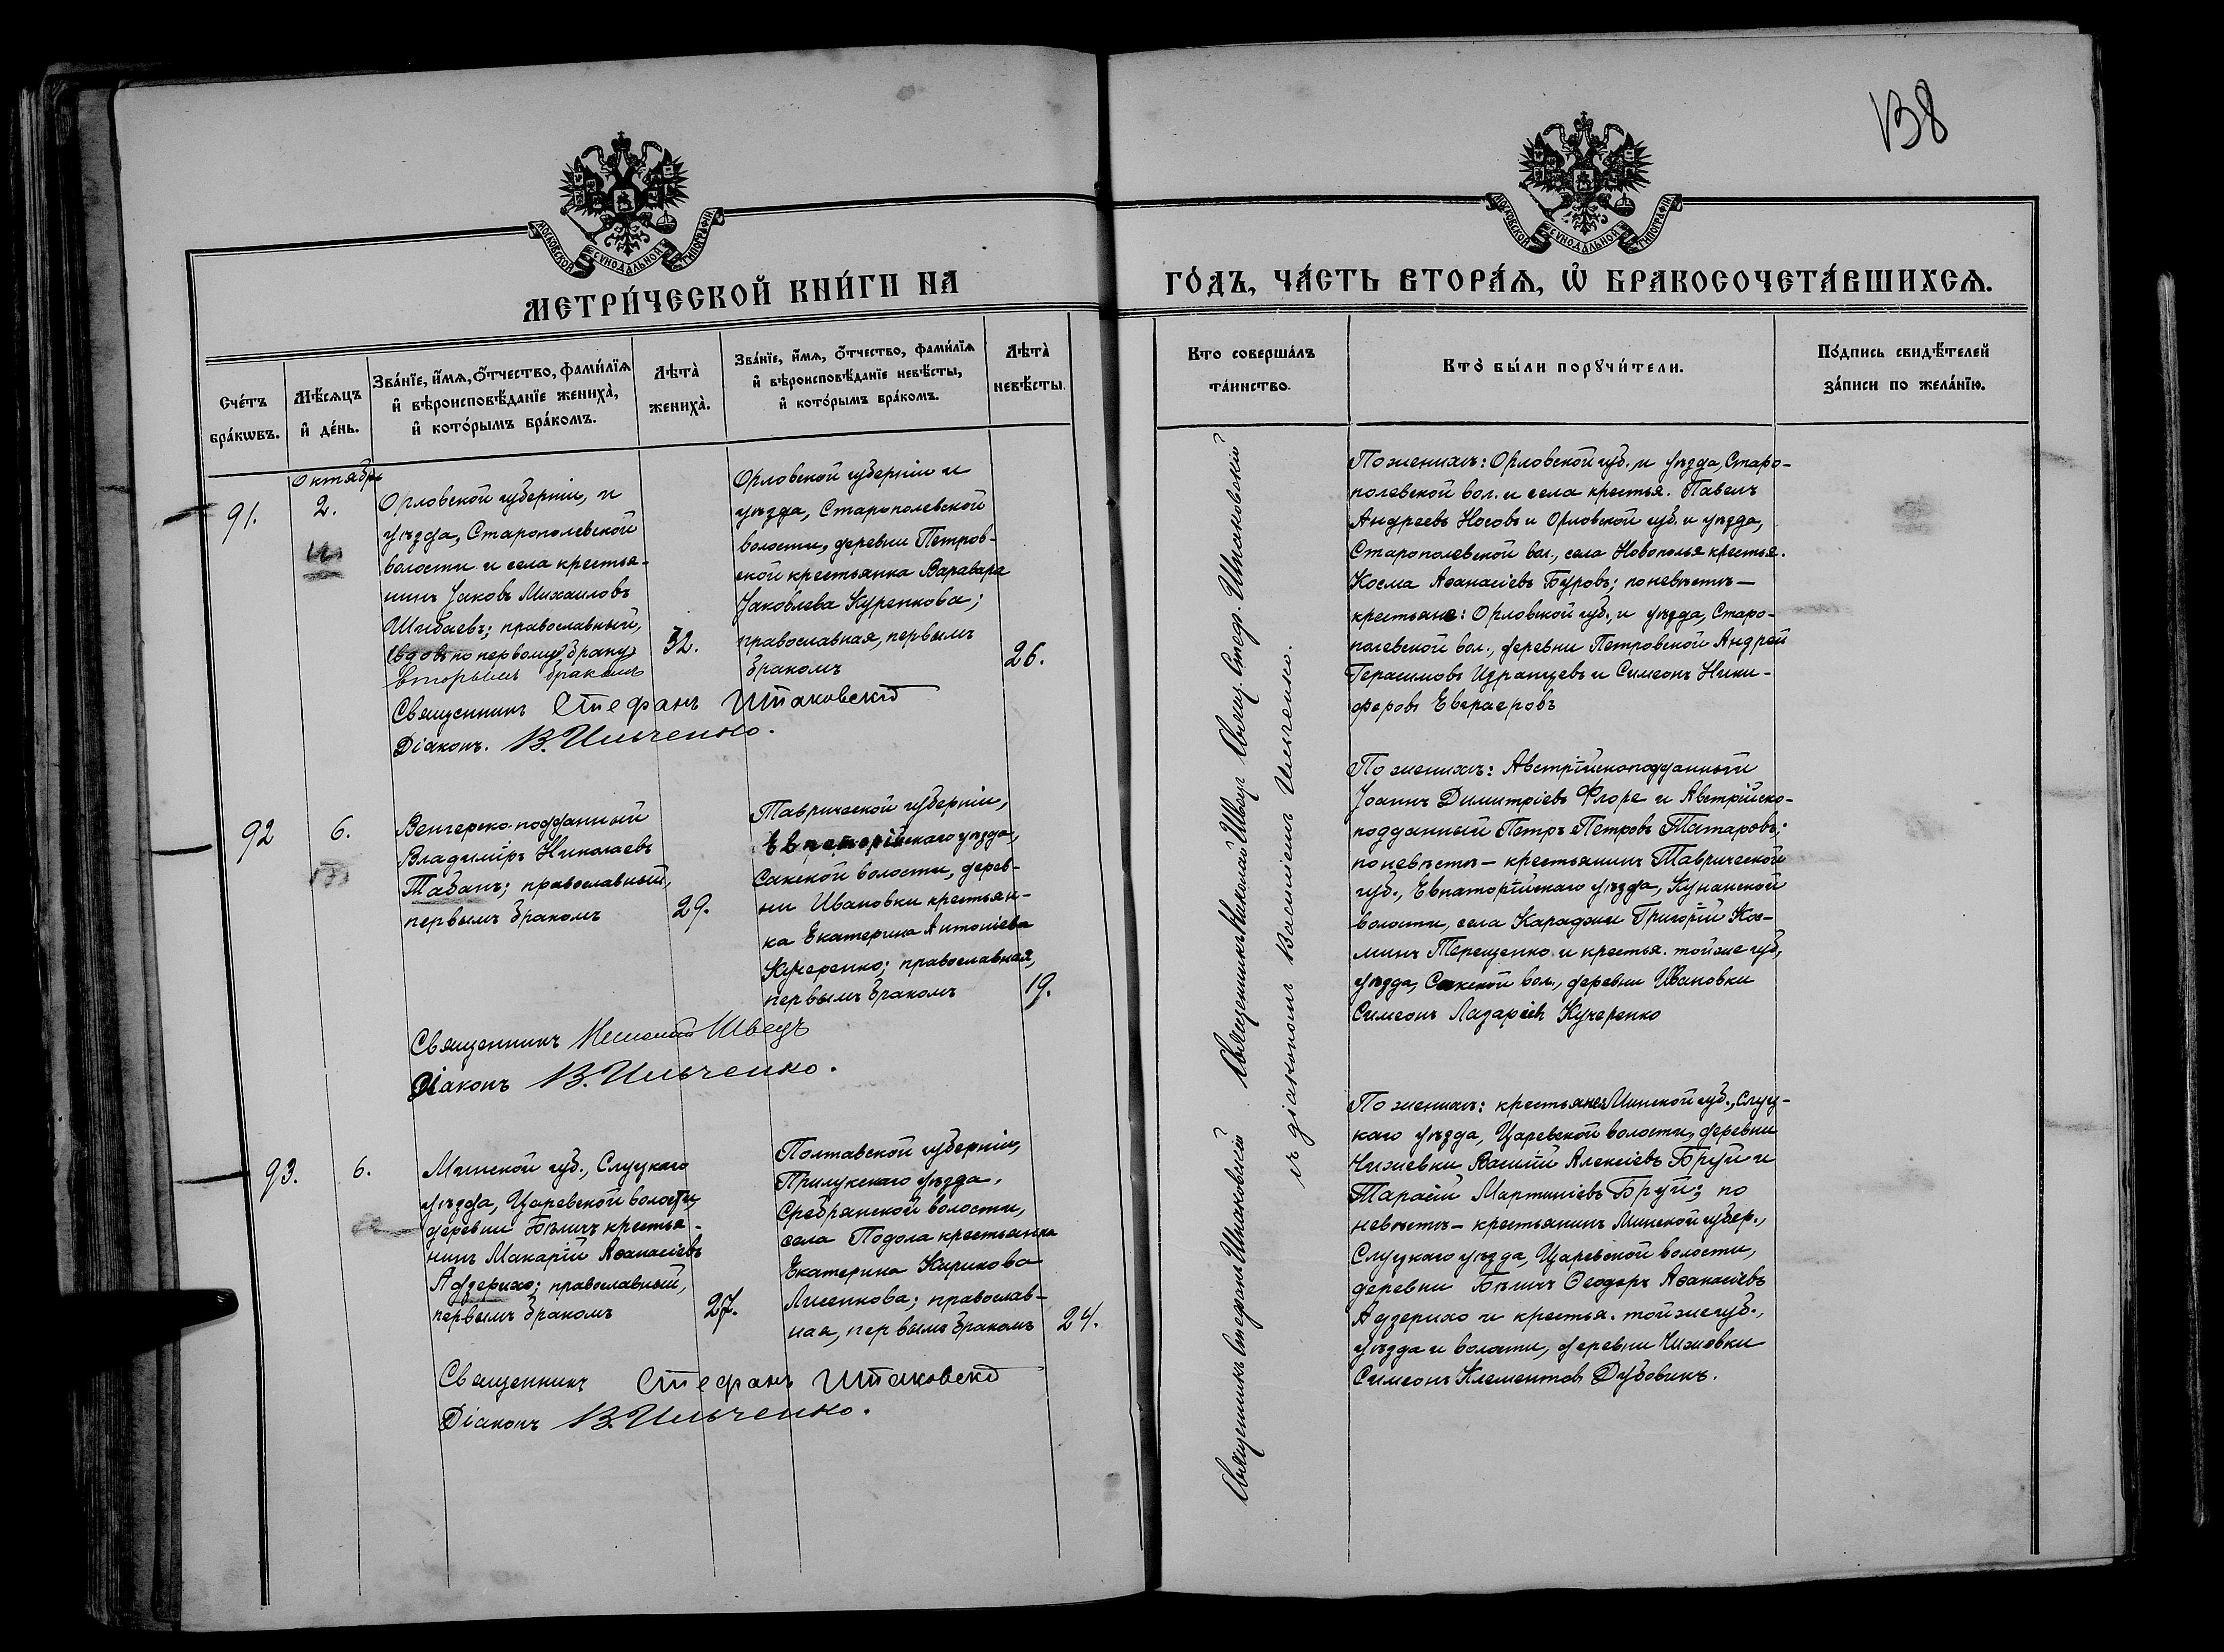 138
МОСКОВСКОЙ СѴНОДАЛЬНОЙ ТИПОГРАФІИ
МЕТРИ́ЧЕСКОЙ КНИ́ГИ НА
Сче́тъ бра́кωвъ.
Мѣ́сяцъ и́ де́нь.
Зва́нїе, и́мѧ, ѻ҆́тчество, фами́лїѧ и҆ вѣроисповѣ́данїе жениха̀, и҆ кото́рымъ бра́комъ.
Лѣта̀ жениха̀.
Зва́нїе, и́мѧ, ѻ҆́тчество, фами́лїѧ и҆ вѣроисповѣ́данїе невѣ́сты, и҆ кото́рымъ бра́комъ.
Лѣта̀ невѣ́сты.
Октябрь
91.
2.
Орловской губерніи, и
уѣзда, Старополевской
волости и села крестья-
нинъ Іаковъ Михаиловъ
Шибаевъ; православный,
(вдовъ по первому браку)
вторымъ бракомъ
32.
Орловской губерніи и
уѣзда, Старополевской
волости, деревни Петров-
ской крестьянка Варвара
Іаковлева Куренкова;
православная, первымъ
бракомъ
26.
Священникъ Стефанъ Шпаковскій
Діаконъ. В. Ильченко.
92
6.
Венгерско-подданный
Владиміръ Николаевъ
Табанъ; православный,
первымъ бракомъ
29.
Таврической губерніи,
Евпаторійскаго уѣзда,
Сакской волости, дерев-
ни Ивановки крестьян-
ка Екатерина Антоніева
Кучеренко; православная,
первымъ бракомъ
19.
Священникъ Николай Швецъ
Діаконъ В. Ильченко.
93.
6.
Минской губ., Слуцкаго
уѣзда, Царевской волости,
деревни Бѣличъ крестья-
нинъ Макарій Аѳанасіевъ
Адзерихо; православный,
первымъ бракомъ
27.
Полтавской губерніи,
Прилукскаго уѣзда,
Сребрянской волости,
села Подола крестьянка
Екатерина Кирикова
Лисенкова; православ-
ная, первымъ бракомъ
24.
Священникъ Стефанъ Шпаковскій
Діаконъ В. Ильченко.
МОСКОВСКОЙ СѴНОДАЛЬНОЙ ТИПОГРАФІИ
ГО́ДЪ, ЧА́СТЬ ВТОРА́Ѧ, Ѽ БРАКОСОЧЕТА́ВШИХСѦ.
Кто соверша́лъ та́инство.
Кто̀ бы́ли порꙋчи́тели.
По́дпись свидѣ́телей за́писи по жела́нїю.
Священникъ Стефанъ Шпаковскій Священникъ Николай Швецъ Свящ. Стеф. Шпаковскій
съ діакономъ Василіемъ Ильченко.
По женихѣ: Орловской губ. и уѣзда, Старо-
полевской вол. и села крестья. Павелъ
Андреевъ Носовъ и Орловской губ. и уѣзда,
Старополевской вол., села Новополья крестья.
Косма Аѳанасіевъ Буровъ; по невѣстѣ —
крестьяне: Орловской губ., и уѣзда, Старо-
полевской вол., деревни Петровской Андрей
Герасимовъ Изранцевъ и Симеонъ Ники-
форовъ
По женихѣ: Австрійскоподданный
Іоаннъ Димитріевъ Флоре и Австрійско-
подданный Петръ Петровъ Татаровъ;
по невѣстѣ — крестьянинъ Таврической
губ., Евпаторійскаго уѣзда, Кунанской
волости, села Караджи Григорій Кос-
минъ Терещенко и крестья. той же губ,
уѣзда, Сакской вол., деревни Ивановки
Симеонъ Лазаревъ Кучеренко
По женихѣ: крестьяне Минской губ., Слуц-
каго уѣзда, Царевской волости, деревни
Чижевки Василій Алексіевъ Бруй и
Тарасій Мартиніевъ Бруй; по
невѣстѣ — крестьянинъ Минской губер.,
Слуцкаго уѣзда, Царевской волости,
деревни Бѣличъ Ѳеодоръ Аѳанасіевъ
Адзерихо и крестья. той же губ.,
уѣзда и волости, деревни Чижевки
Симеонъ Климентовъ Дубовикъ.